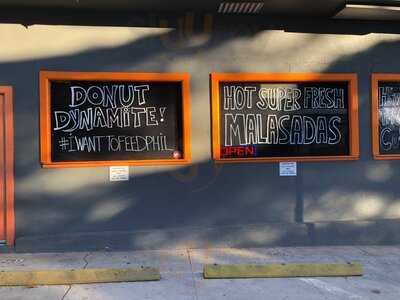 DONUT
DYNAMITE!
#IWANTTOFEEDPHIL
HOT SUPER FRESH
MALASADAS
OPEN